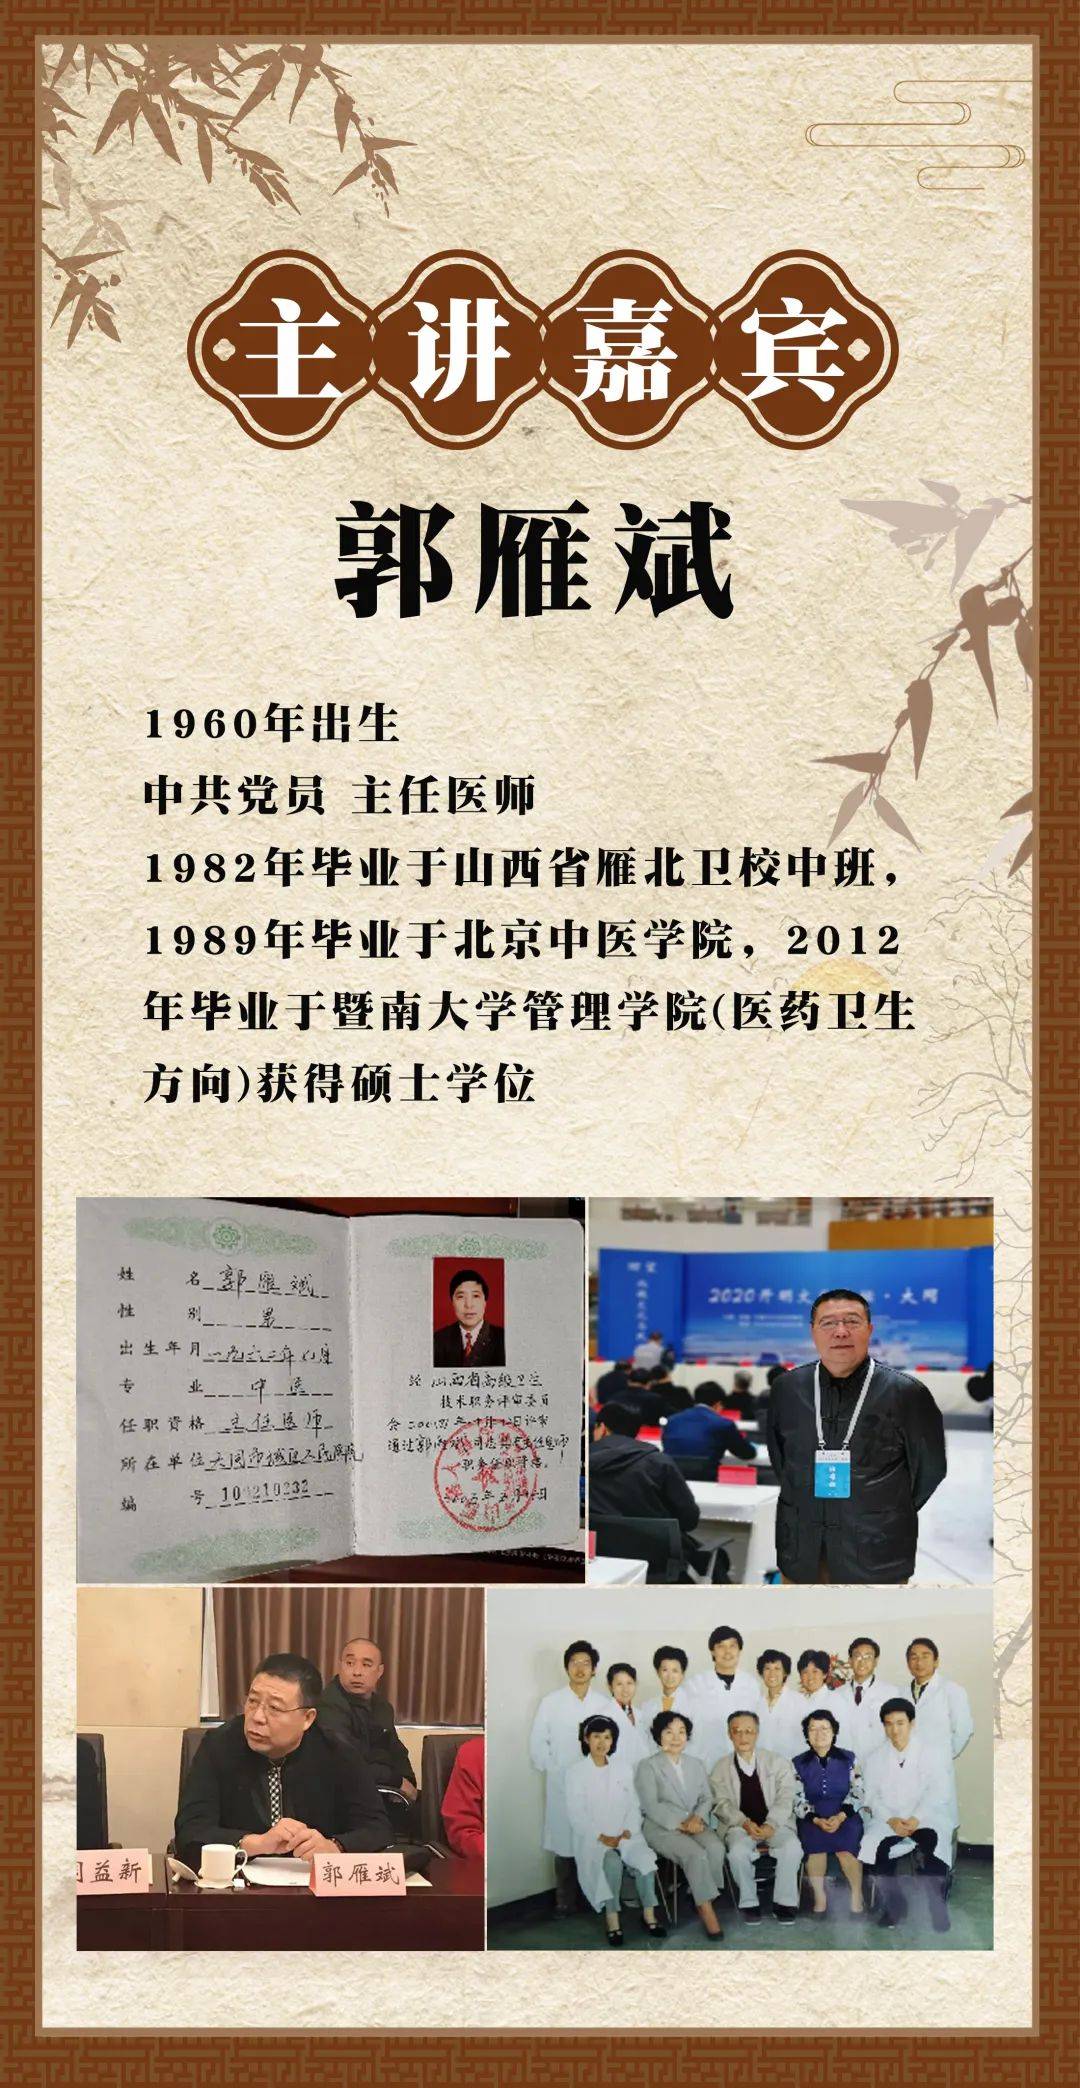 主讲嘉宾
郭雁斌
1960年出生
中共党员 主任医师
1982年毕业于山西省雁北卫校中班，
1989年毕业于北京中医学院，2012
年毕业于暨南大学管理学院(医药卫生
方向)获得硕士学位
姓名 郭雁斌
性别 男
出生年月
专业 中医
任职资格 主任医师
所在单位 大同市城区人民医院
编号 100210232
经山西省高级卫生
技术职务评审委员
职务任职资格。
2020开明文 · 大同
益新
郭雁斌